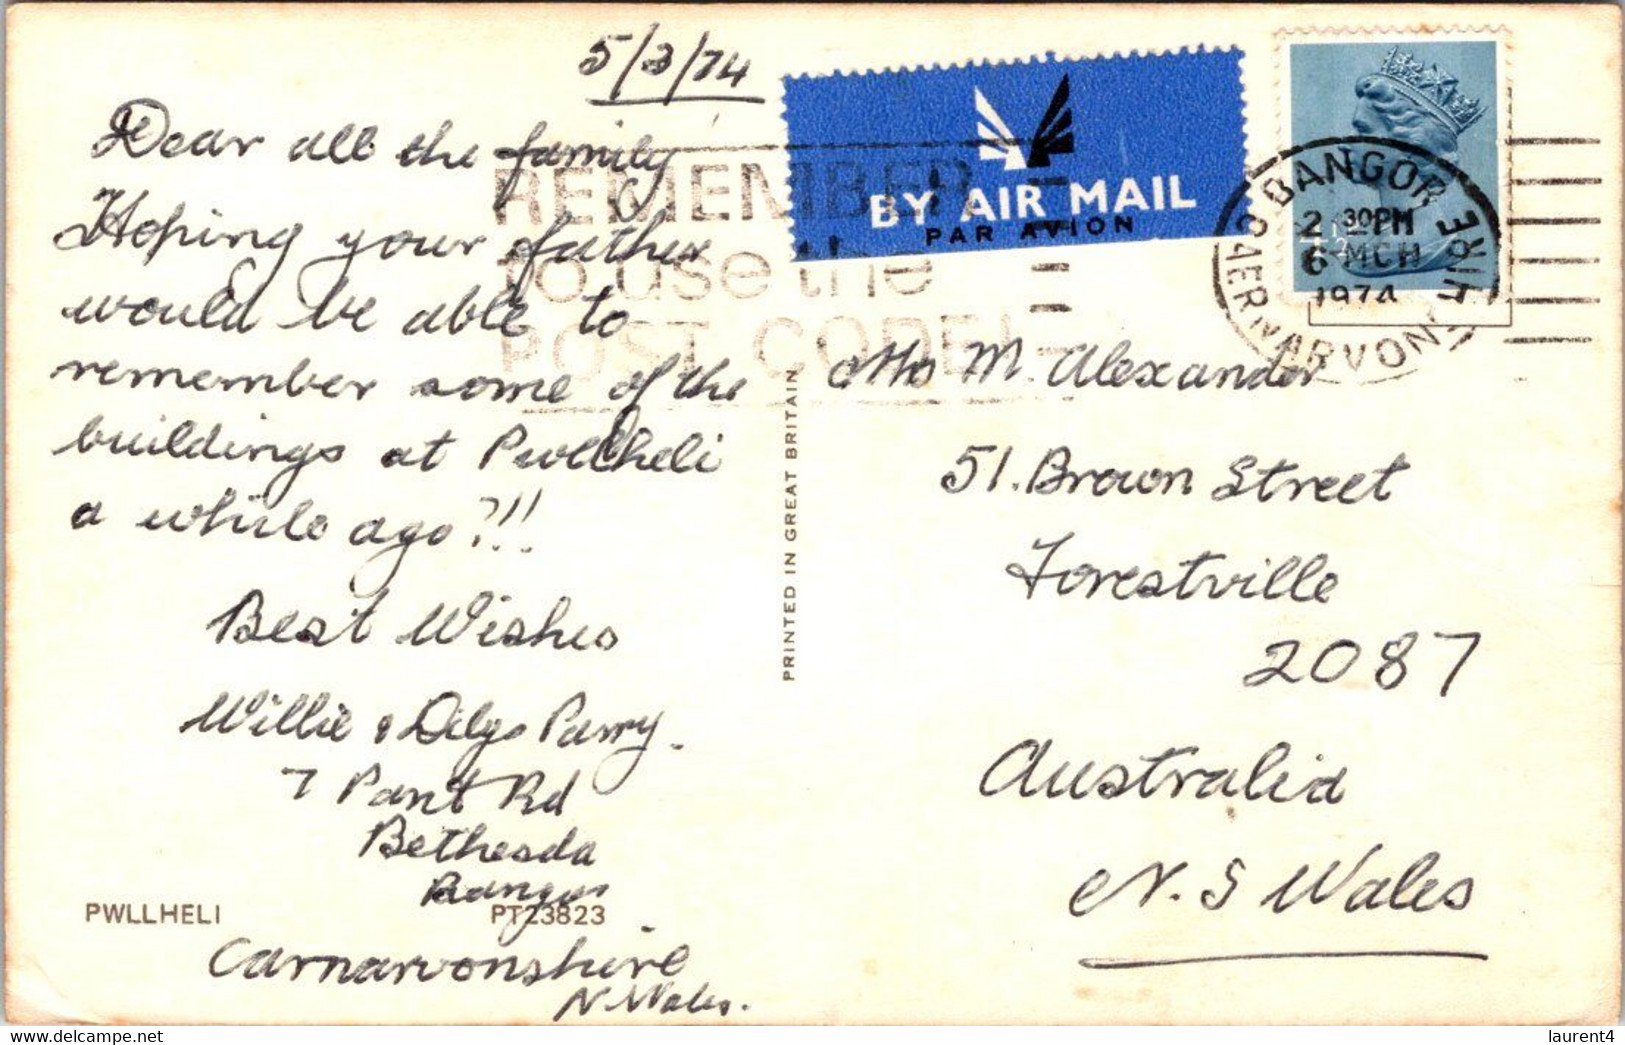 5/3/74
Dear all the family
Hoping your father
would be able to
remember some of the
buildings at Pwllheli
a while ago?!!!
Best Wishes
Willie & Dilys Parry.
7 Pant Rd
Bethesda
Bangor
Carnarvonshire
N. Wales.
PWLLHELI
PT23823
REMEMBER
to use the
POST CODE!
PRINTED IN GREAT BRITAIN
BY AIR MAIL
PAR AVION
BANGOR
2 30PM
6 MCH
1974
CAERNARVONSHIRE
4½
M. Alexander
51. Brown Street
Forestville
2087
Australia
N. S Wales
delcampe.net
laurent4